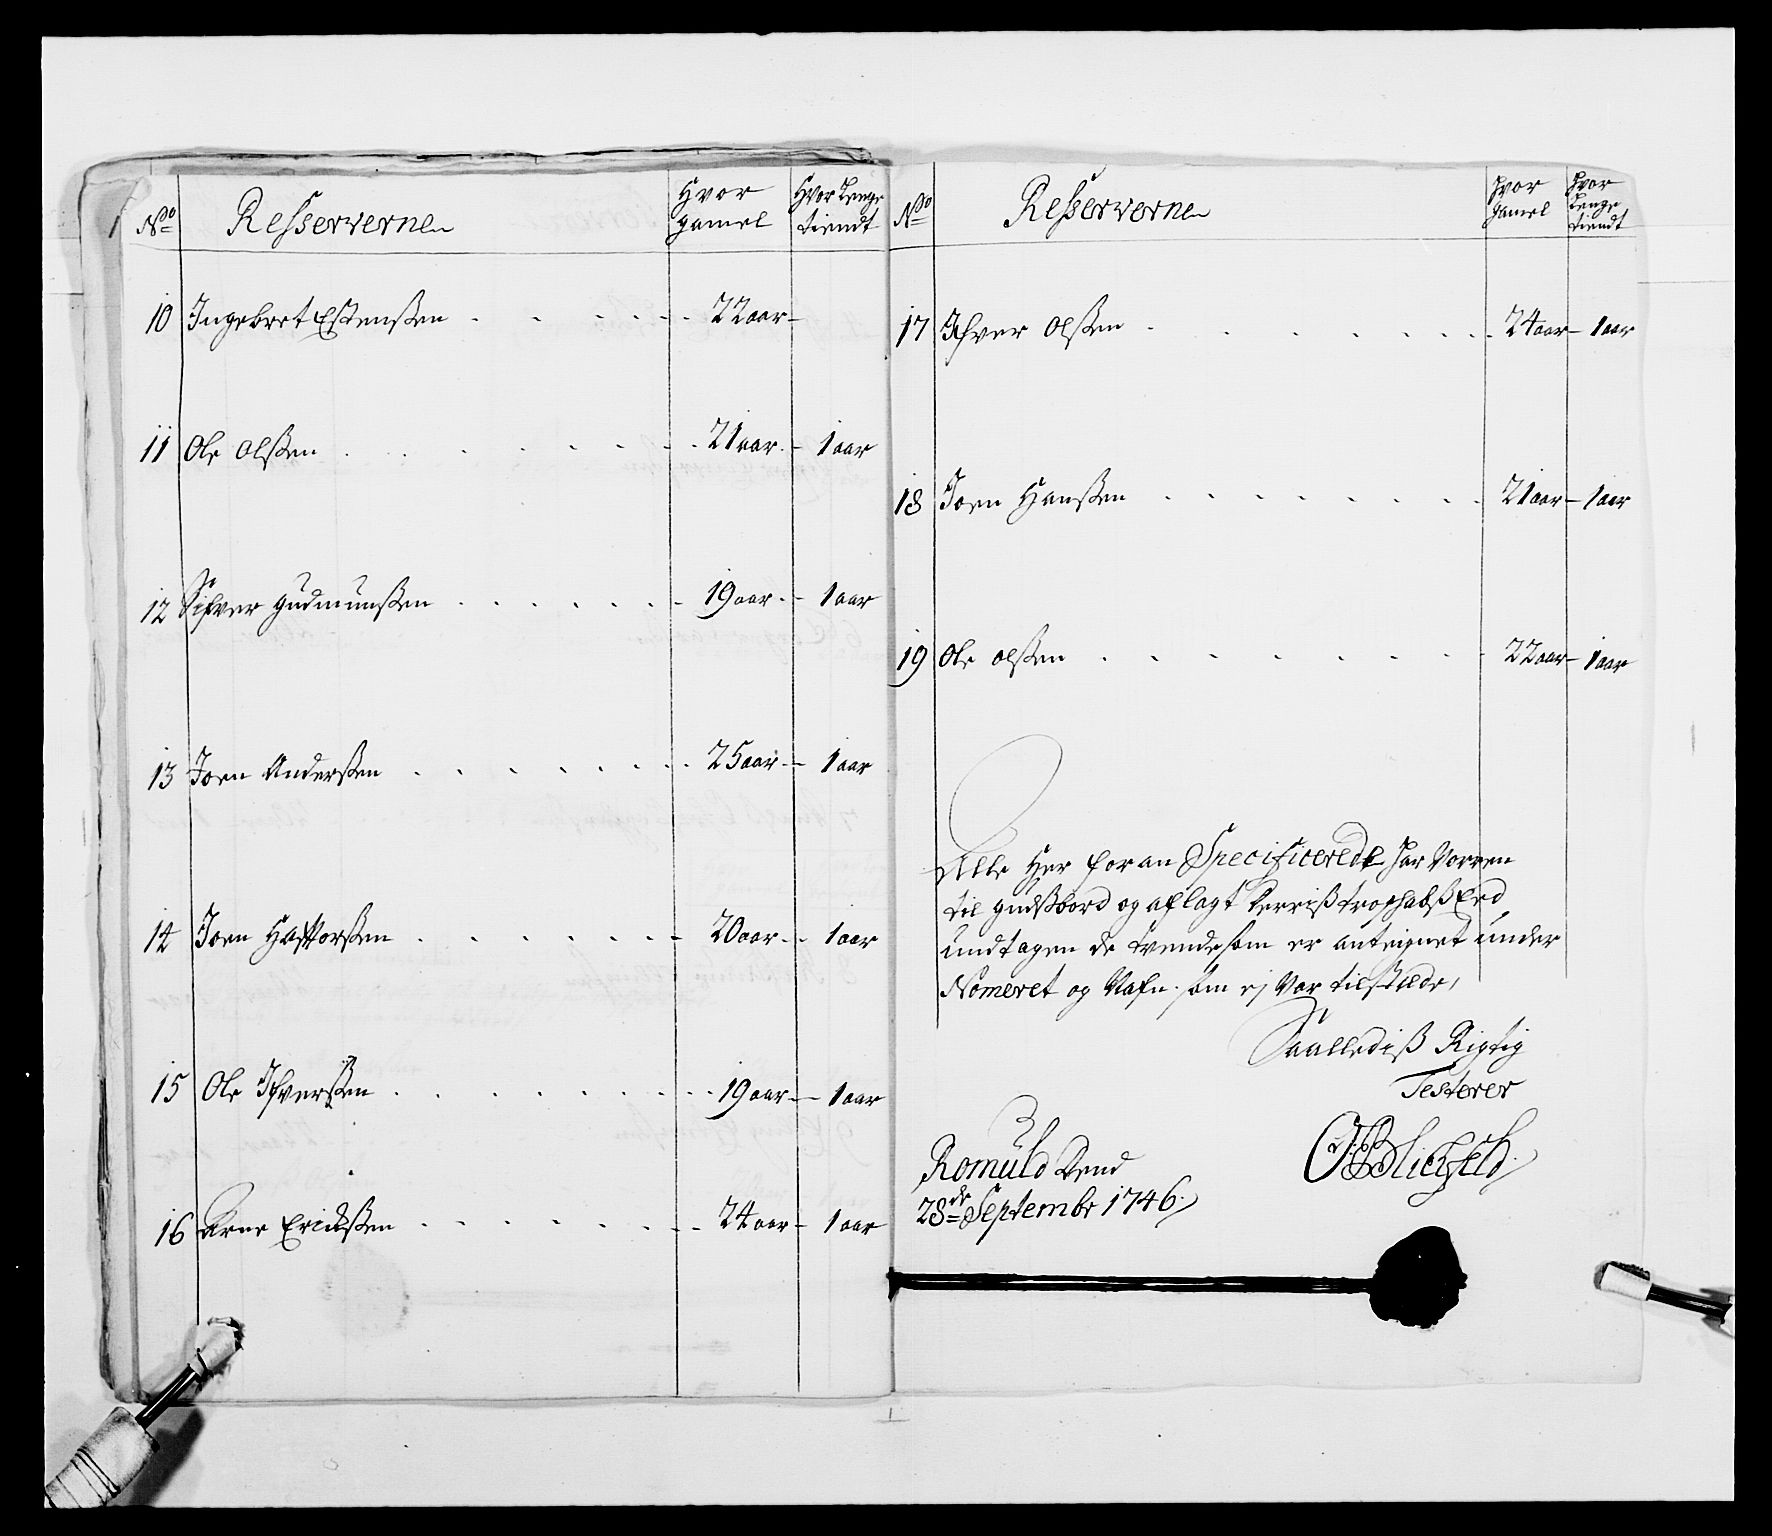 No Resserverne Hvor gamel Hvor Lenge tiendt
10 Ingebret Estenßen 22 aar
11 Ole Olßen 21 aar 1 aar
12 Sifver Gudmunßen 19 aar 1 aar
13 Joen Anderßen 25 aar 1 aar
14 Joen Haftorßen 20 aar 1 aar
15 Ole Ifverßen 19 aar 1 aar
16 Arne Ericksßen 24 aar 1 aar
No Resserverne Hvor gamel Hvor Lenge tiendt
17 Ifver Olßen 24 aar 1 aar
18 Joen Hanßen 21 aar 1 aar
19 Ole Olßen 22 aar 1 aar
Alle Her foran Specificerede har Vorren
til gudßbord og aflagt Eed
undtagen de tvende som er anteignet under
Nomeret og Nafn som ej Var tilstæde,
Saallediß Rigtig
Testerer
Romuld Dend
28de Septembr 1746
Blichfeld